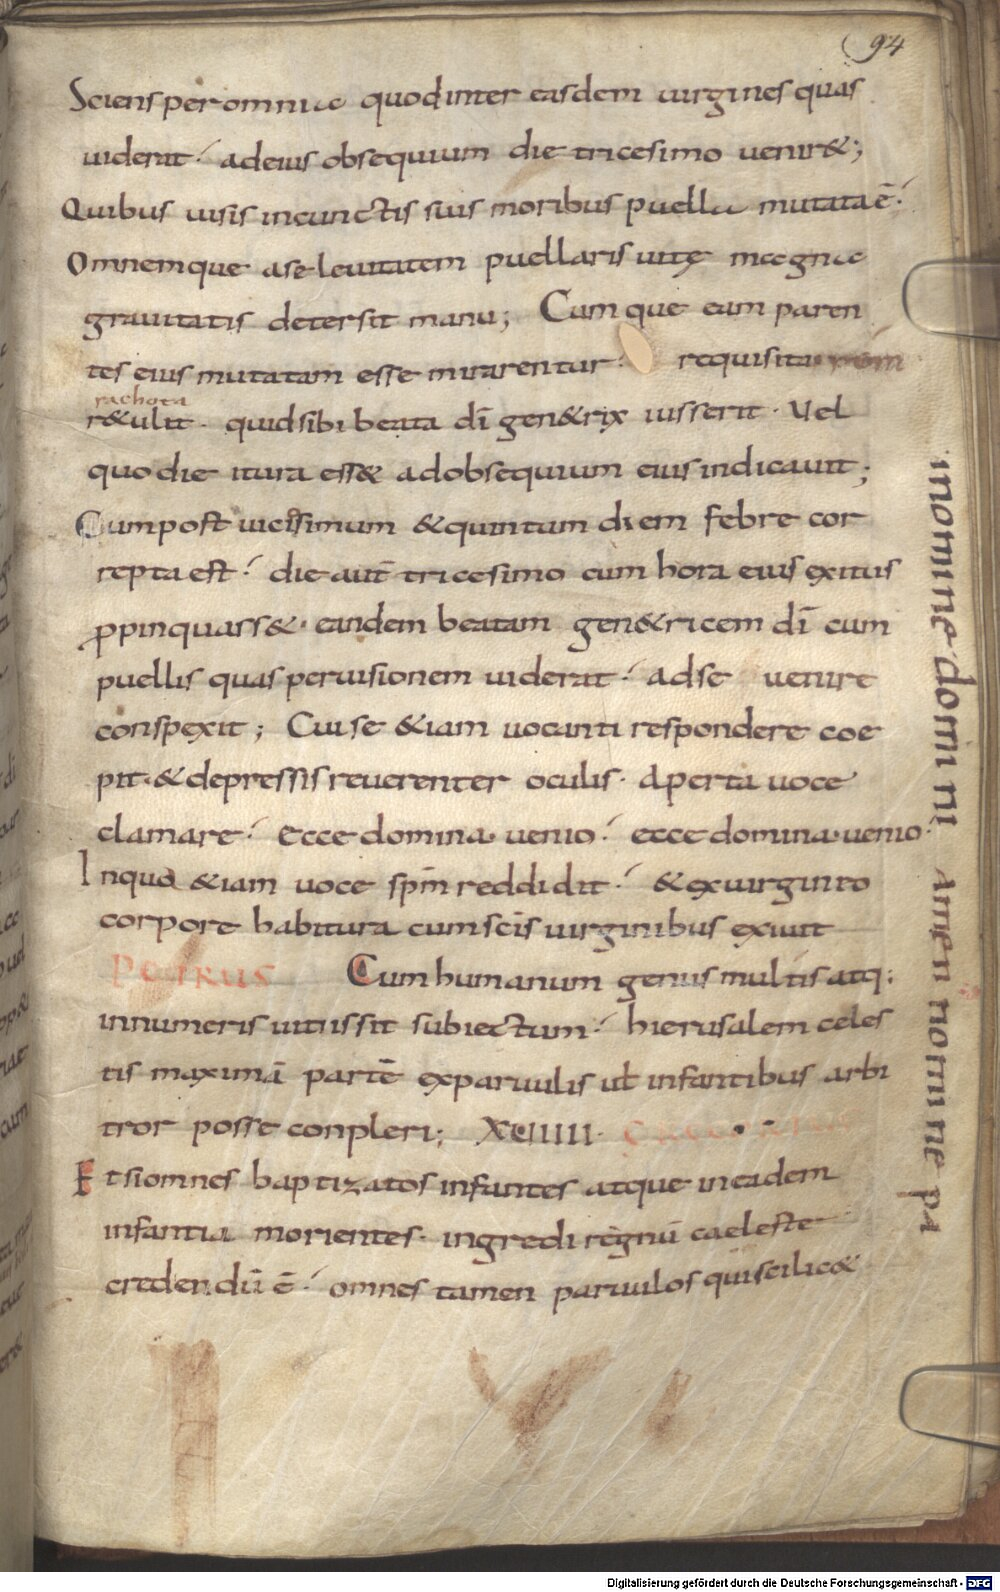 94
Sciens per omnia quod inter easdem uirgines quas
uiderat. ad eius obsequium die tricesimo uenir&;
Quibus uisis in cunctis suis moribus puella mutata ē.
Omnemque a se leuitatem puellaris uitę magna
grauitatis detersit manu; Cumque eam paren
tes eius mutatam esse mirarentur. requisita rem
rachota
r&ulit. quid sibi beata dī gen&rix iusserit. Vel
quo die itura ess& ad obsequium eius indicauit;
Cum post uicessimum & quintum diem febre cor
repta est. die aut̄ tricesimo cum hora eius exitus
ꝓpinquass&. eandem beatam gen&ricem dī cum
puellis quas per uisionem uiderat. ad se uenire
conspexit; Cui se &iam uocanti respondere coe
pit. & depressis reuerenter oculis. aperta uoce
clamare. Ecce domina. uenio. ecce domina. uenio.
In qua &iam uoce sp̄m reddidit. & ex uirgineo
corpore habitura cum scīs uirginibus exiuit
PETRUS Cum humanum genus multis atq:
innumeris uitiis sit subiectum. hierusalem celes
tis maximā partē ex paruulis ut̄ infantibus arbi
tror posse conpleri; XUIIII.
Et si omnes baptizatos infantes atque in eadem
infantia morientes. ingredi regnū caeleste
credendū ē. omnes tamen paruulos qui scilic&
in omine domi ni Amen nomine pa
Digitalisierung gefördert durch die Deutsche Forschungsgemeinschaft - DFG